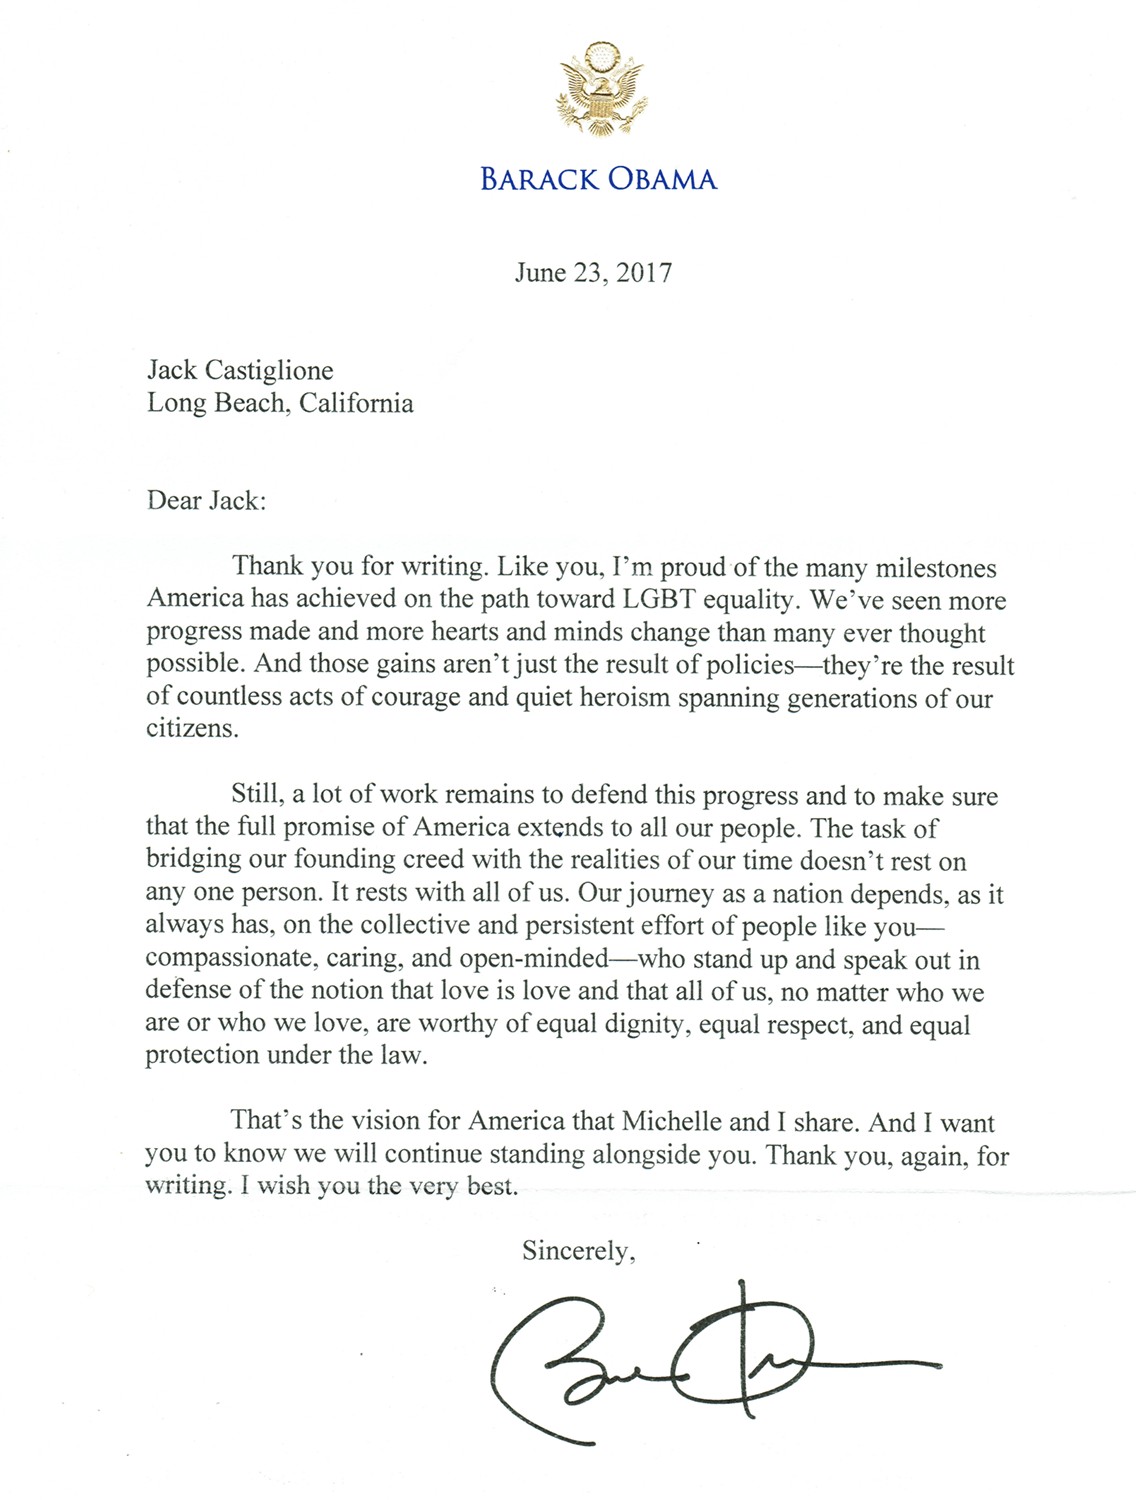 BARACK OBAMA
June 23, 2017
Jack Castiglione
Long Beach, California
Dear Jack:
Thank you for writing. Like you, I'm proud of the many milestones
America has achieved on the path toward LGBT equality. We've seen more
progress made and more hearts and minds change than many ever thought
possible. And those gains aren't just the result of policies—they're the result
of countless acts of courage and quiet heroism spanning generations of our
citizens.
Still, a lot of work remains to defend this progress and to make sure
that the full promise of America extends to all our people. The task of
bridging our founding creed with the realities of our time doesn't rest on
any one person. It rests with all of us. Our journey as a nation depends, as it
always has, on the collective and persistent effort of people like you—
compassionate, caring, and open-minded—who stand up and speak out in
defense of the notion that love is love and that all of us, no matter who we
are or who we love, are worthy of equal dignity, equal respect, and equal
protection under the law.
That's the vision for America that Michelle and I share. And I want
you to know we will continue standing alongside you. Thank you, again, for
writing. I wish you the very best.
Sincerely,